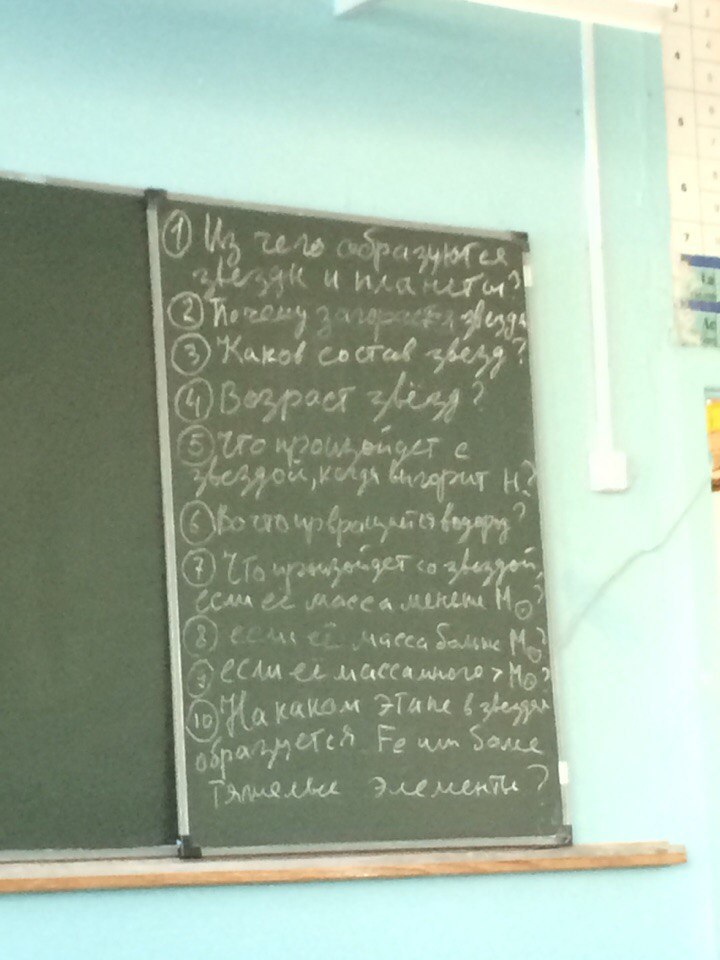 ① Из чего образуются
звезды и планеты?
② Почему загораются звезды
③ Каков состав звезд?
④ Возраст звёзд?
⑤ Что произойдет с
звездой, когда выгорит H?
⑥ Во что превращается водород?
⑦ Что произойдет со звездой,
если её масса менее M☉?
⑧ если её масса больше M☉?
⑨ если её масса много > M☉?
⑩ На каком этапе в звездах
образуется Fe или более
тяжелые элементы?
3
4
5
6
7